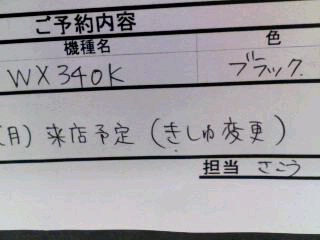 ご予約内容
機種名 色
WX340K ブラック
(月) 来店予定 (きしゅ変更)
担当 さこう